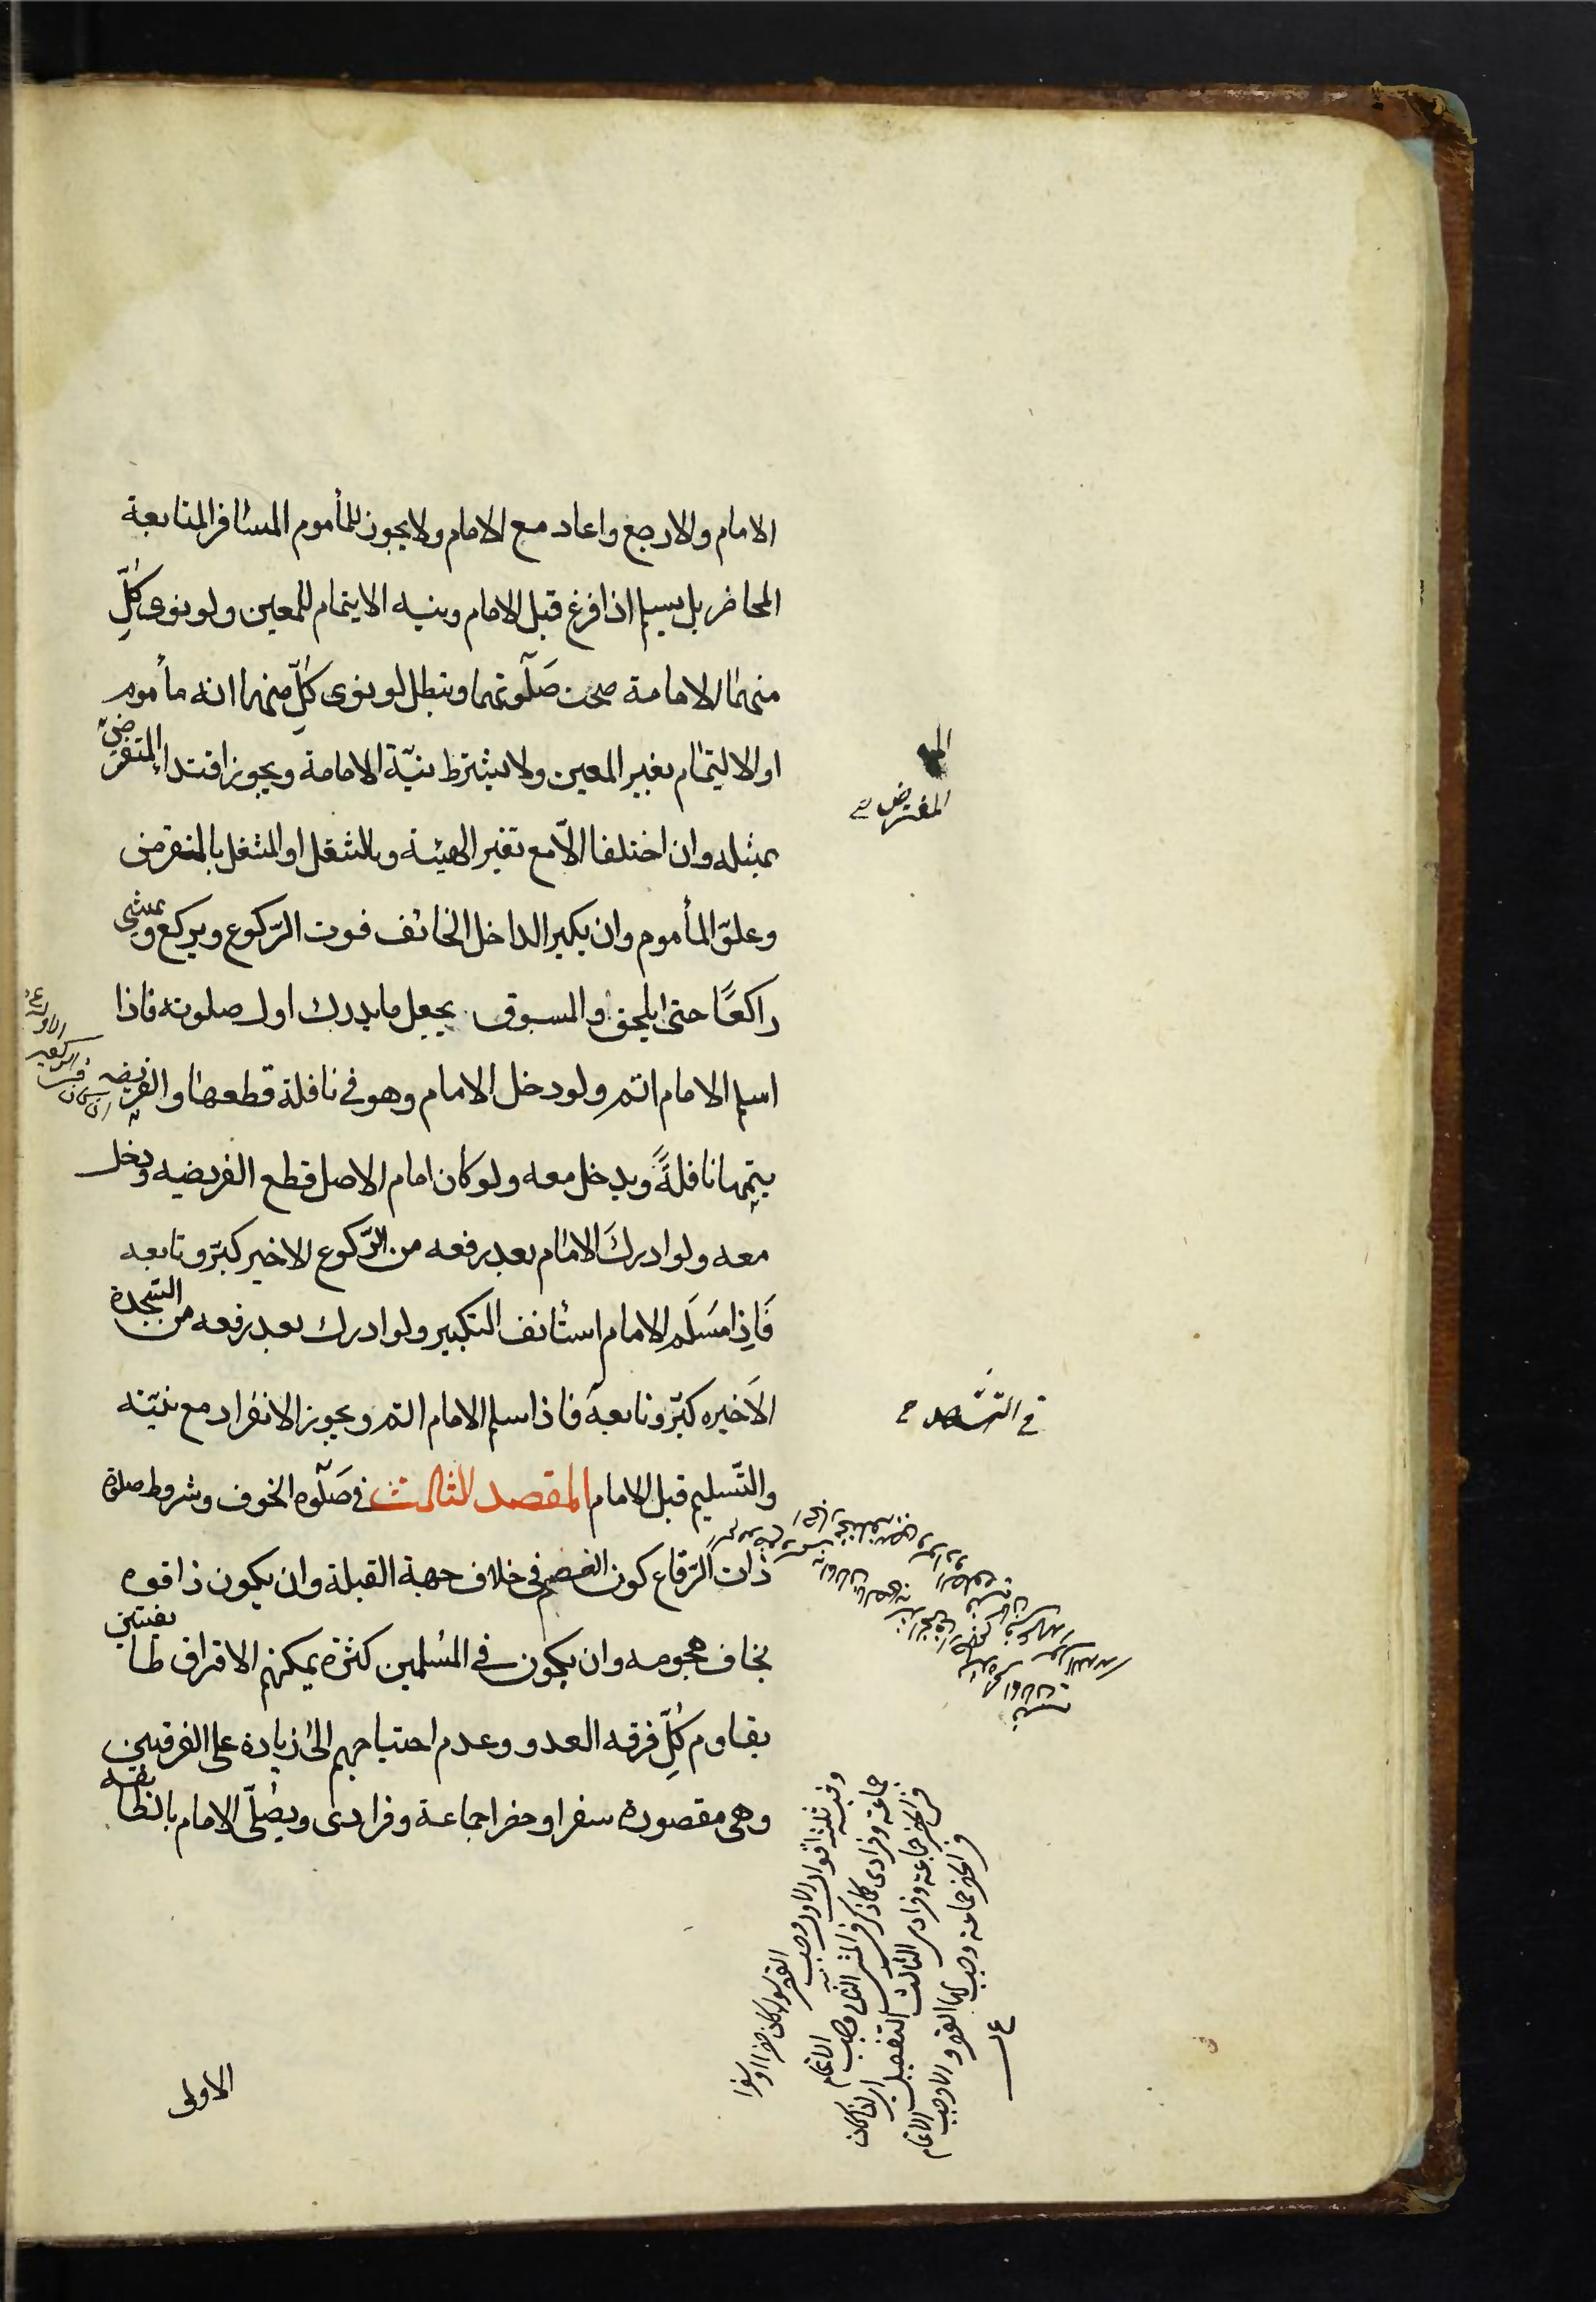 الامام والا رجع واعاد مع الامام ولا يجوز للمأموم المسافر المتابعة
الحاضر بل يسلم اذا فرغ قبل الامام ونيه الايتمام للمعين ولو نوى كلّ
منهما الامامة صحت صلوتهما وتبطل لو نوى كلّ منهما انه مأموم
او الايتمام بغير المعين ولا يشترط نيّة الامامة ويجوز اقتداء المتفرض
بمثله وان اختلفا الّا مع تغير الهيئة وبالتنفل او المتنفل بالمتفرض
وعلوّ المأموم وان يكبر الداخل الخائف فوت الرّكوع ويركع ويمشي
راكعًا حتى يلحق والمسبوق يجعل ما يدرك اول صلوته فاذا
اسلم الامام اتم ولو دخل الامام وهو في نافلة قطعها والفريضه
يتمها نافلةً ويدخل معه ولو كان امام الاصل قطع الفريضه ودخل
معه ولو ادرك الامام بعد رفعه من الرّكوع الاخير كبّر وتابعه
فَاِذا سَلَم الامام استأنف التكبير ولو ادرك بعد رفعه من السّجدة
الاَخيره كبّر وتابعه فاذا سلم الامام اتم ويجوز الانفراد مع نيّته
والتّسليم قبل الامام المقصد الثالث في صَلوه الخوف وشروط صلوة
ذات الرّقاع كون الخصم في خلاف جهة القبلة وان يكون ذا قوه
يخاف هجومه وان يكون في المسلمين كثرة يمكنهم الافتراق طايفتين
يقاوم كلّ فرقه العدو وعدم احتياجهم الى زيادة على الفرقتين
وهي مقصورة سفرا وحضرا جماعة وفرادى ويصلّى الامام بالطايفه
الاولى
المفترض
في التشهد
وفيه ثلثة اقوال الاول وجب القصر سواء كان حضرا او سفرا
جماعة وفرادى كما ذكر في المتن الثاني وجب الاتمام
في الحضر جماعة وفرادى الثالث التفصيل ان كان
في الحضر جماعة وجب القصر والا وجب الاتمام